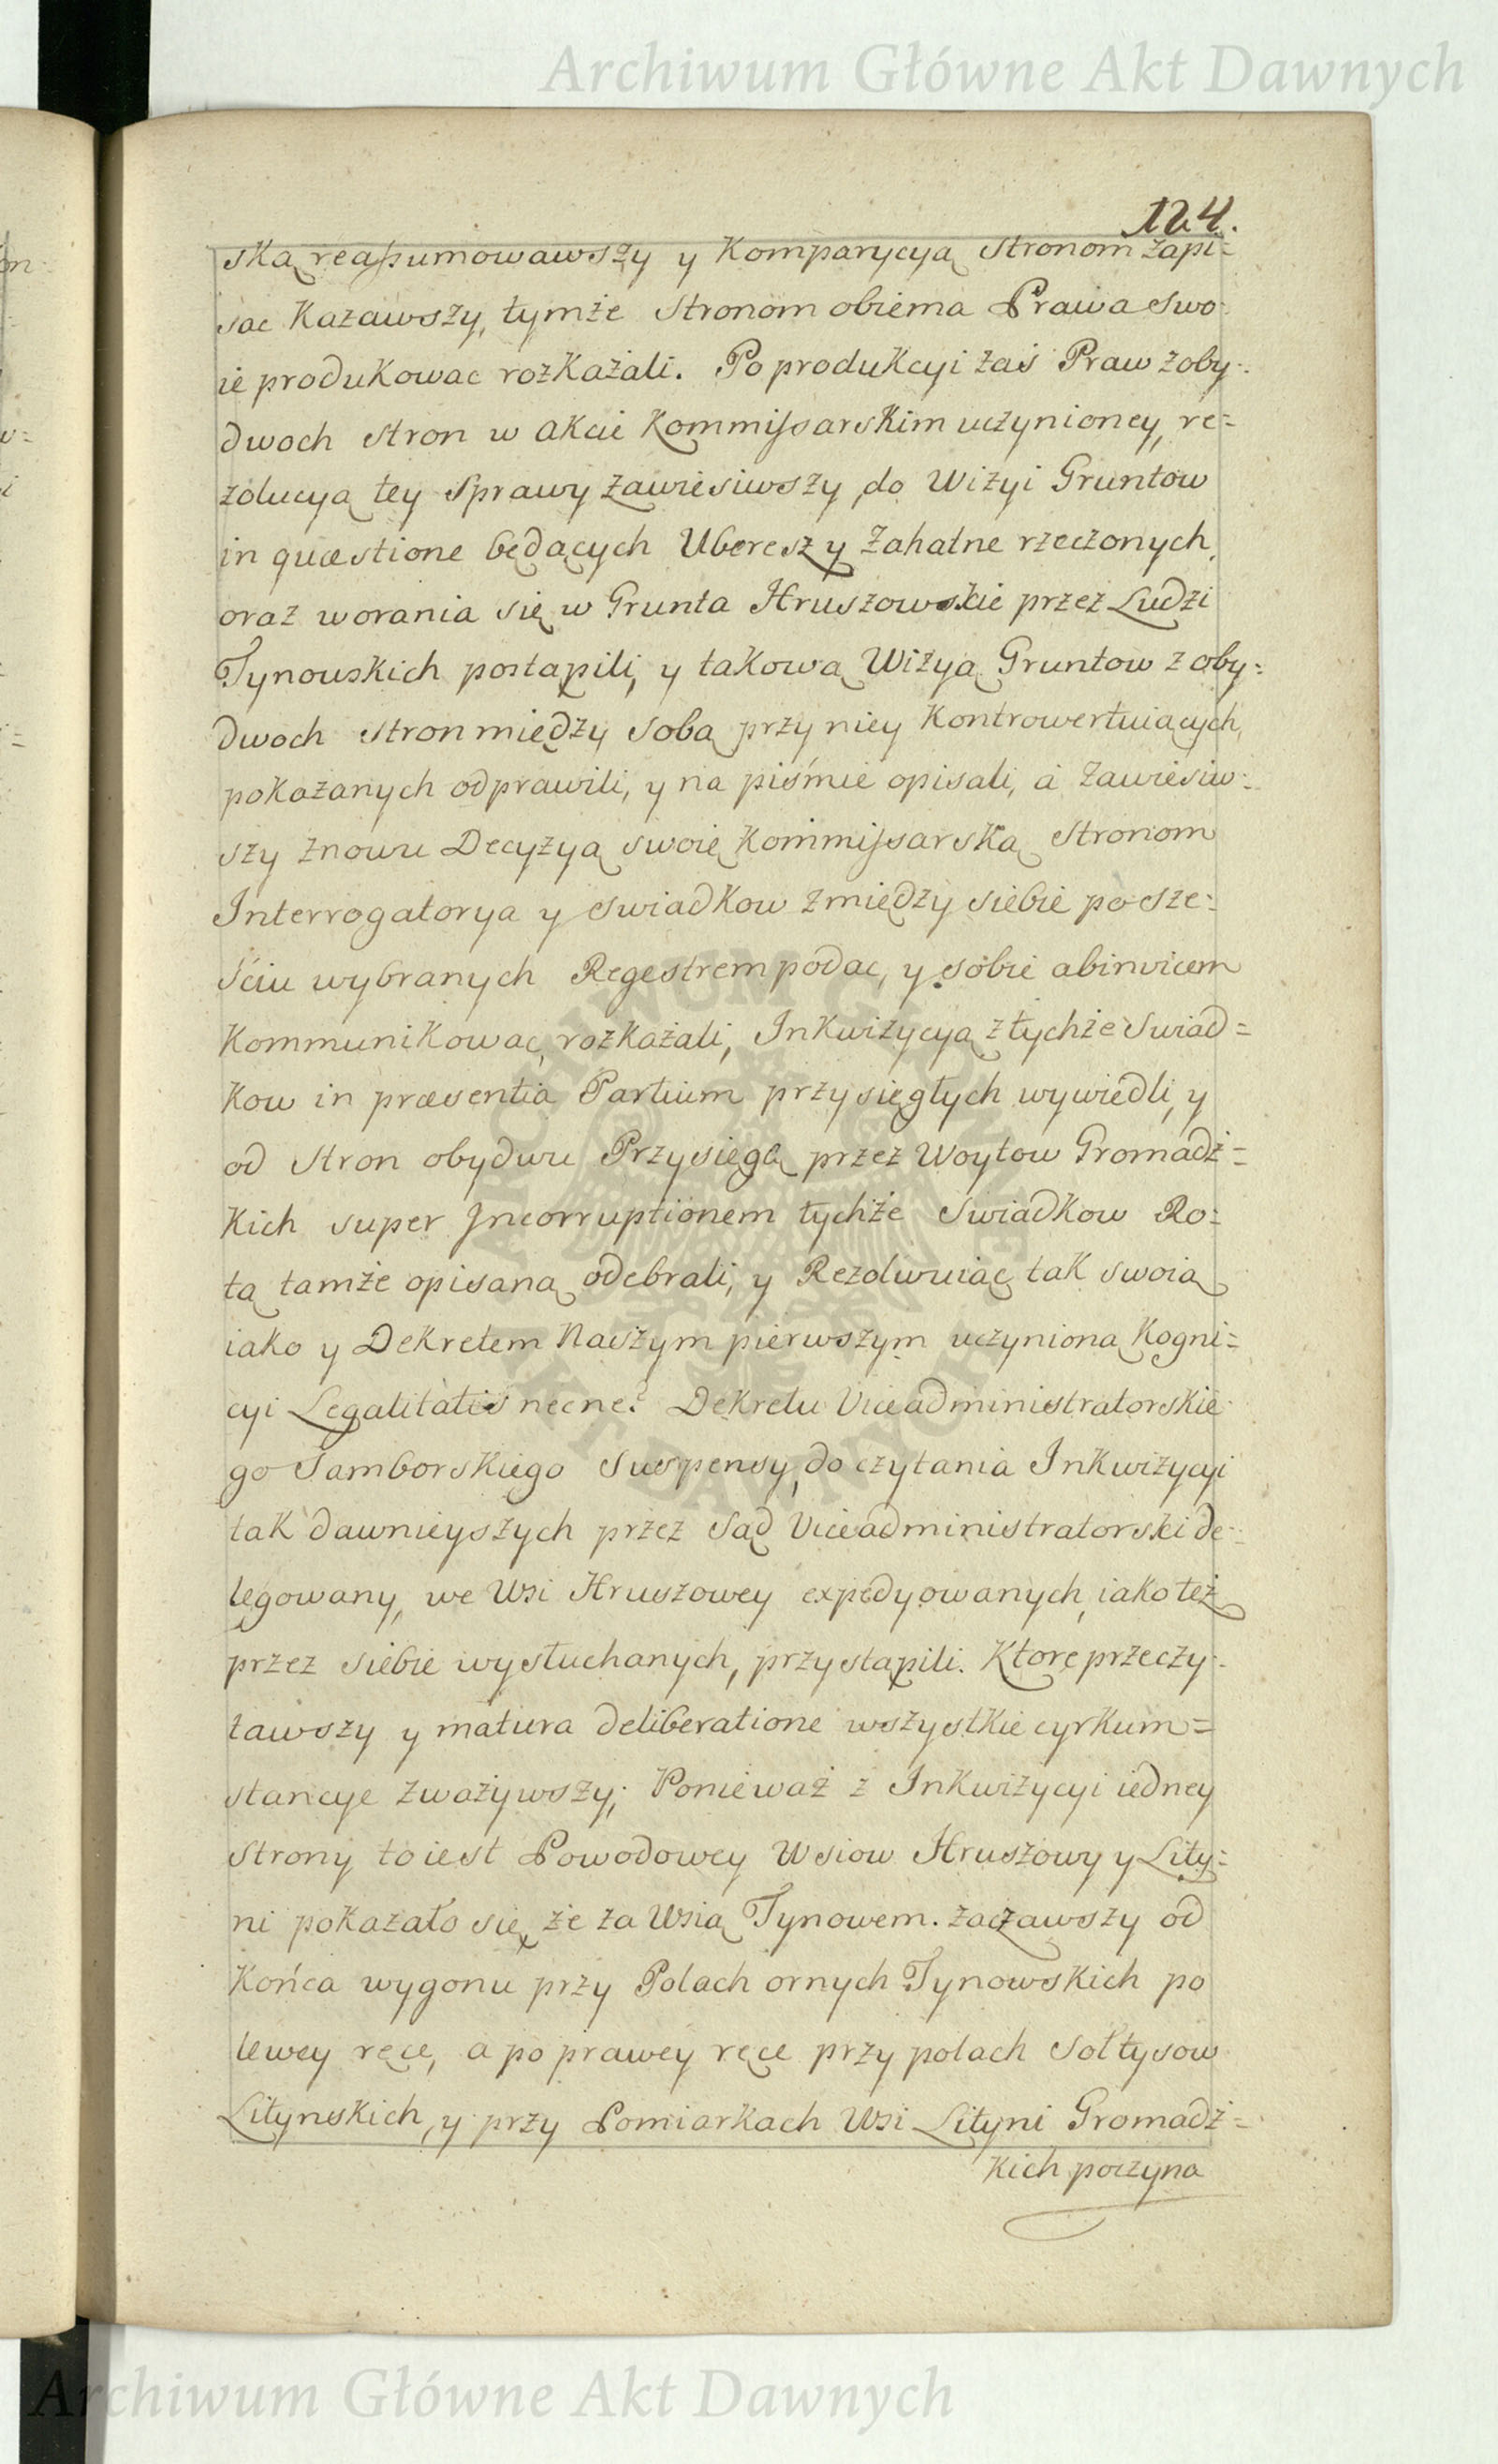 Archiwum Główne Akt Dawnych
124.
ską reassumowawszy y Komparycyą Stronom zapi=
sac Kazawszy, tymże Stronom obiema Prawa swo=
ie produkowac rozkażali. Po produkcyi zaś Praw z oby=
dwoch stron w akcie Kommissarskim uczynioney, re=
zolucyą tey Sprawy zawiesiwszy, do Wizyi Gruntow
in quæstione będących Uberesz y Zahatne rzeczonych,
oraz worania się w Grunta Hruszowskie przez Ludzi
Tynowskich postąpili, y takową Wizyą Gruntow z oby=
dwoch stron między sobą przy niey Kontrowertuiących,
pokazanych odprawili, y na piśmie opisali, a zawiesiw=
szy znowu Decyzyą swoię Kommissarską Stronom
Interrogatorya y swiadkow z między siebie po sze=
ściu wybranych Regestrem podac, y sobie abinvicem
Kommunikowac rozkażali, Inkwizycyą z tychże Swiad=
kow in præsentia Partium przysięgłych wywiedli, y
od Stron obydwu Przysięgę przez Woytow Gromadz=
kich super Incorruptionem tychże Swiadkow Ro=
tą tamże opisaną odebrali, y Rezolwuiąc tak swoią
iako y Dekretem Naszym pierwszym uczynioną Kogni=
cyi Legalitatis necne? Dekretu Viceadministratorskie=
go Samborskiego Suspensy, do czytania Inkwizycyi
tak dawnieyszych przez Sąd Viceadministratorski de=
legowany, we Wsi Hruszowey expedyowanych, iako też
przez siebie wysłuchanych, przystąpili. Ktore przeczy=
tawszy y matura deliberatione wszystkie cyrkum=
stancye zważywszy; Ponieważ z Inkwizycyi iedney
Strony to iest Powodowey Wsiow Hruszowy y Lity=
ni pokazało się, że za Wsią Tynowem. zacząwszy od
Końca wygonu przy Polach ornych Tynowskich po
lewey ręce, a po prawey ręce przy polach Sołtysow
Litynskich, y przy Pomiarkach Wsi Lityni Gromadz=
kich poczyna
Archiwum Główne Akt Dawnych